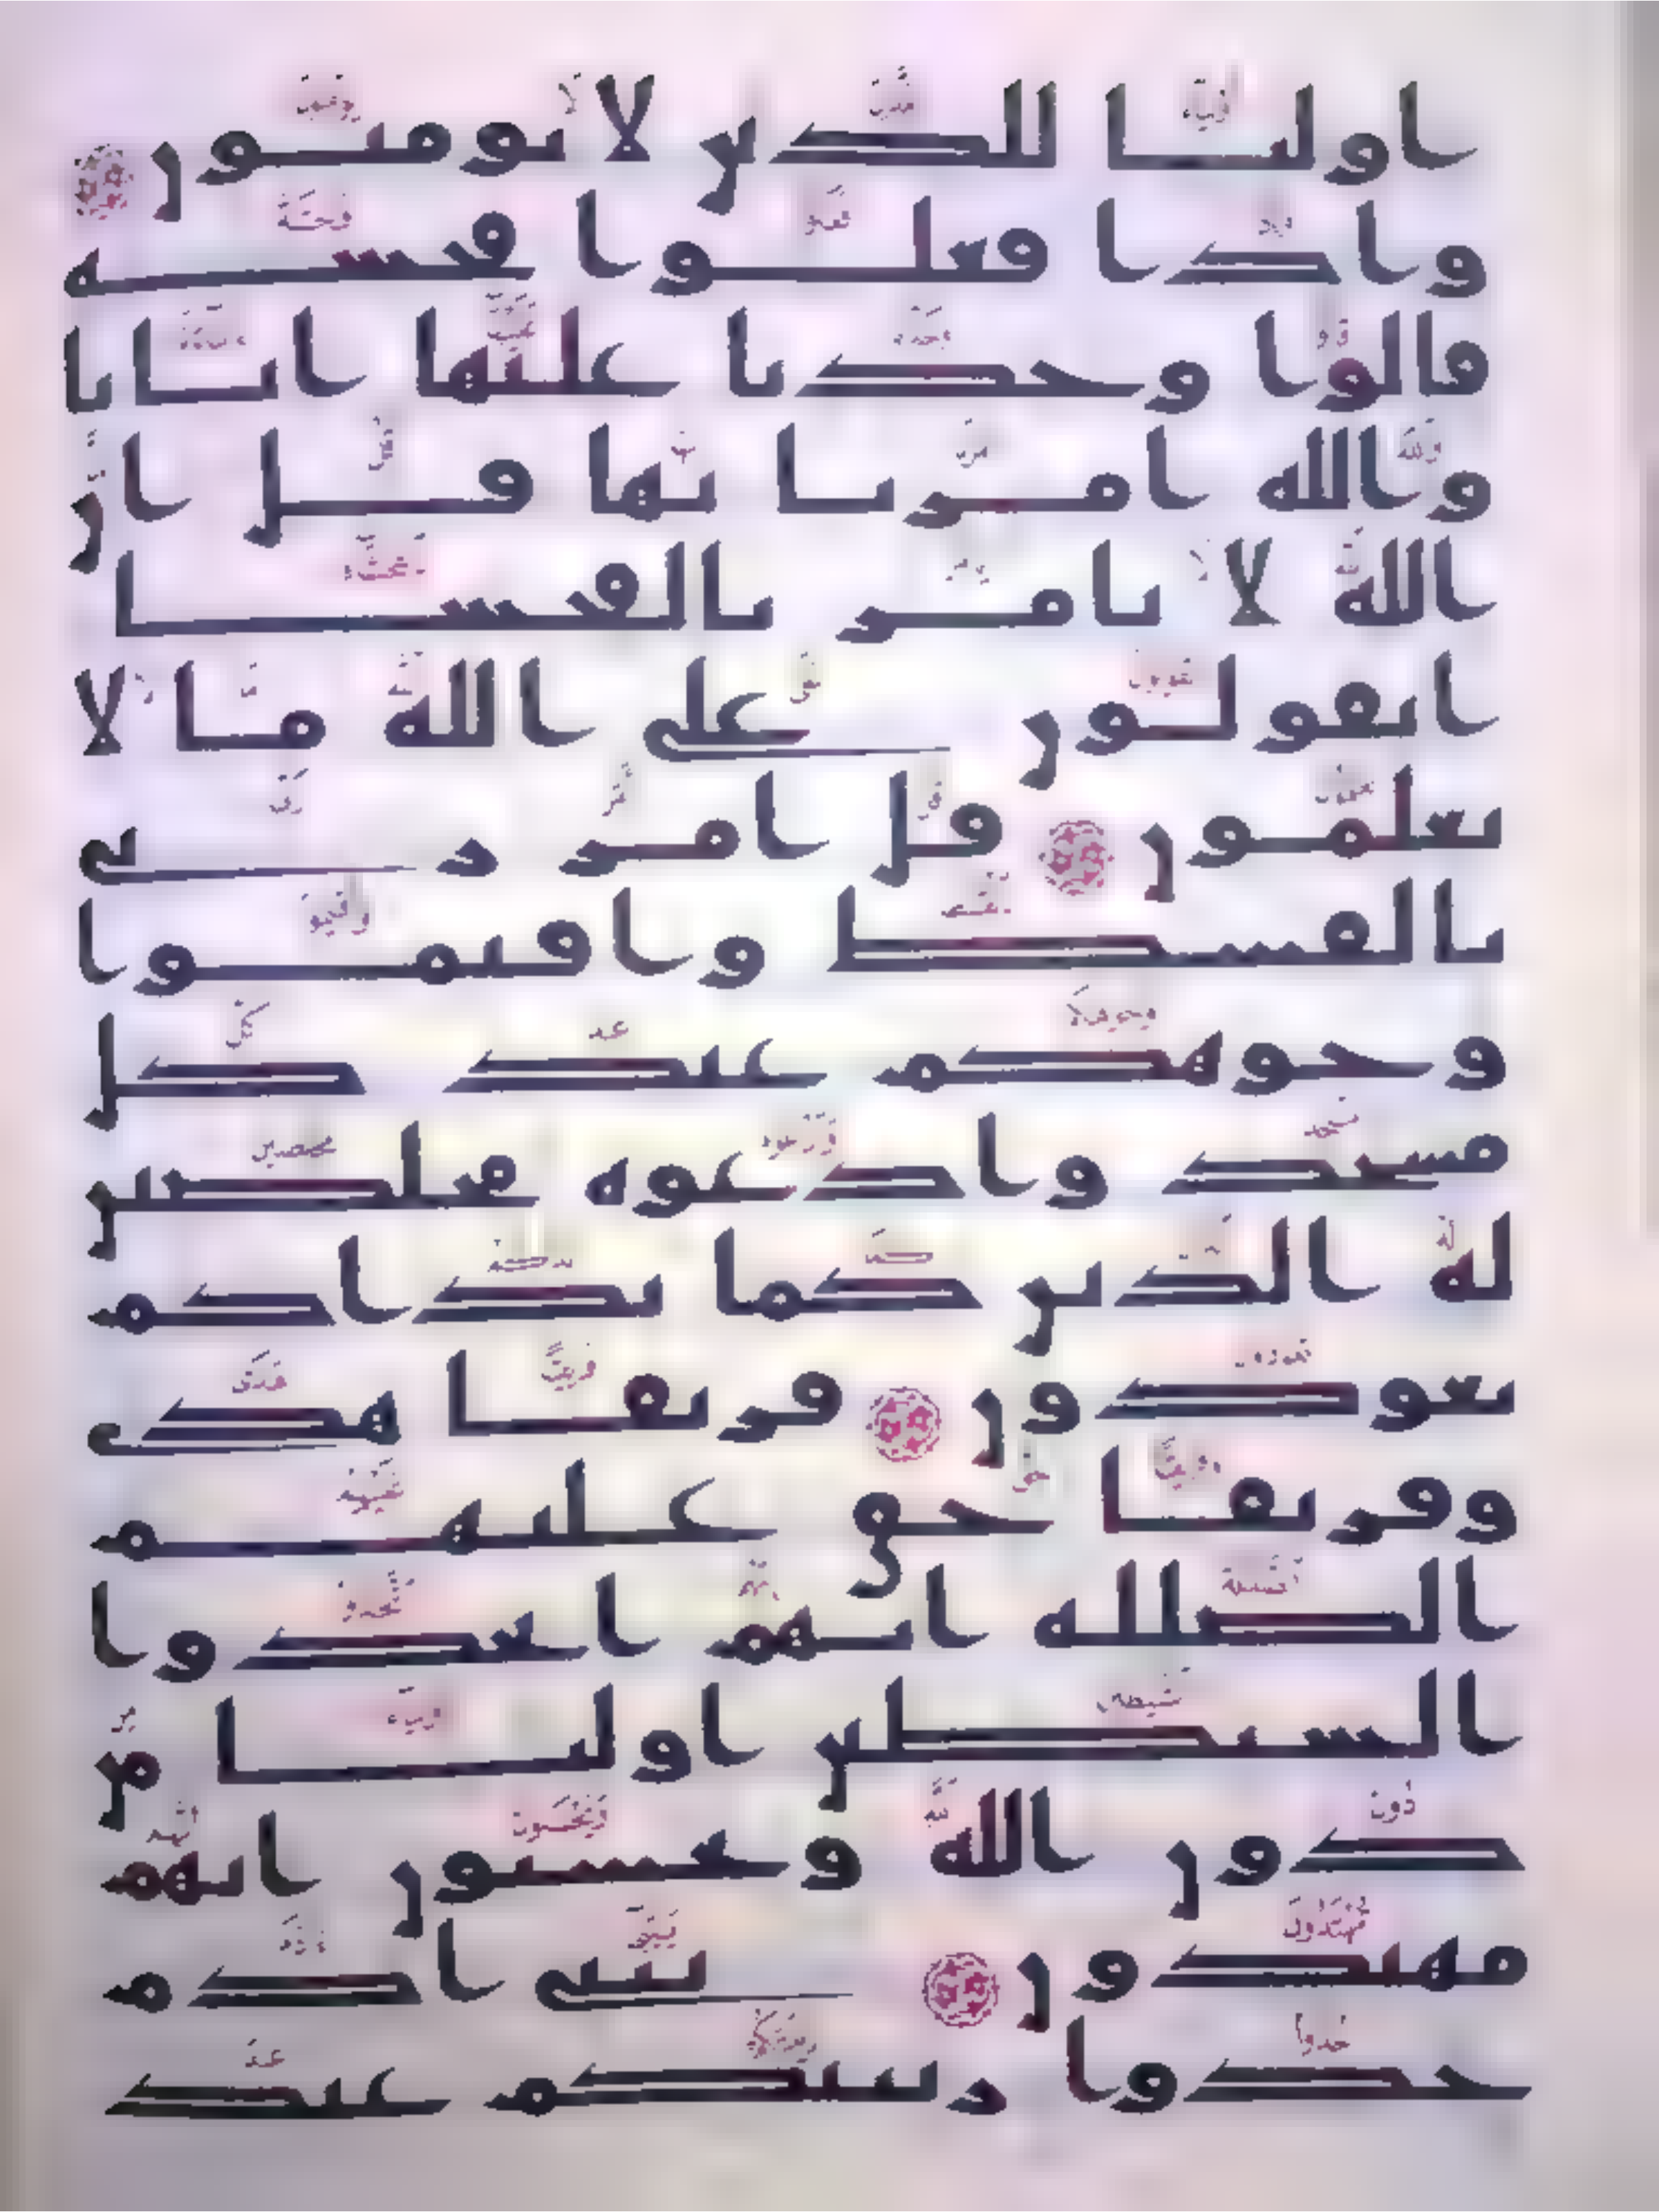 اوليا للذين لا يومنون
واذا فعلوا فحشه
قالوا وجدنا عليها اباءنا
والله امرنا بها قل ان
الله لا يامر بالفحشا
اتقولون على الله ما لا
تعلمون قل امر ربى
بالقسط واقيموا
وجوهكم عند كل
مسجد وادعوه مخلصين
له الدين كما بداكم
تعودون فريقا هدى
وفريقا حق عليهم
الضلله انهم اتخذوا
الشيطين اوليا من
دون الله ويحسبون انهم
مهتدون يبنى ادم
خذوا زينتكم عند